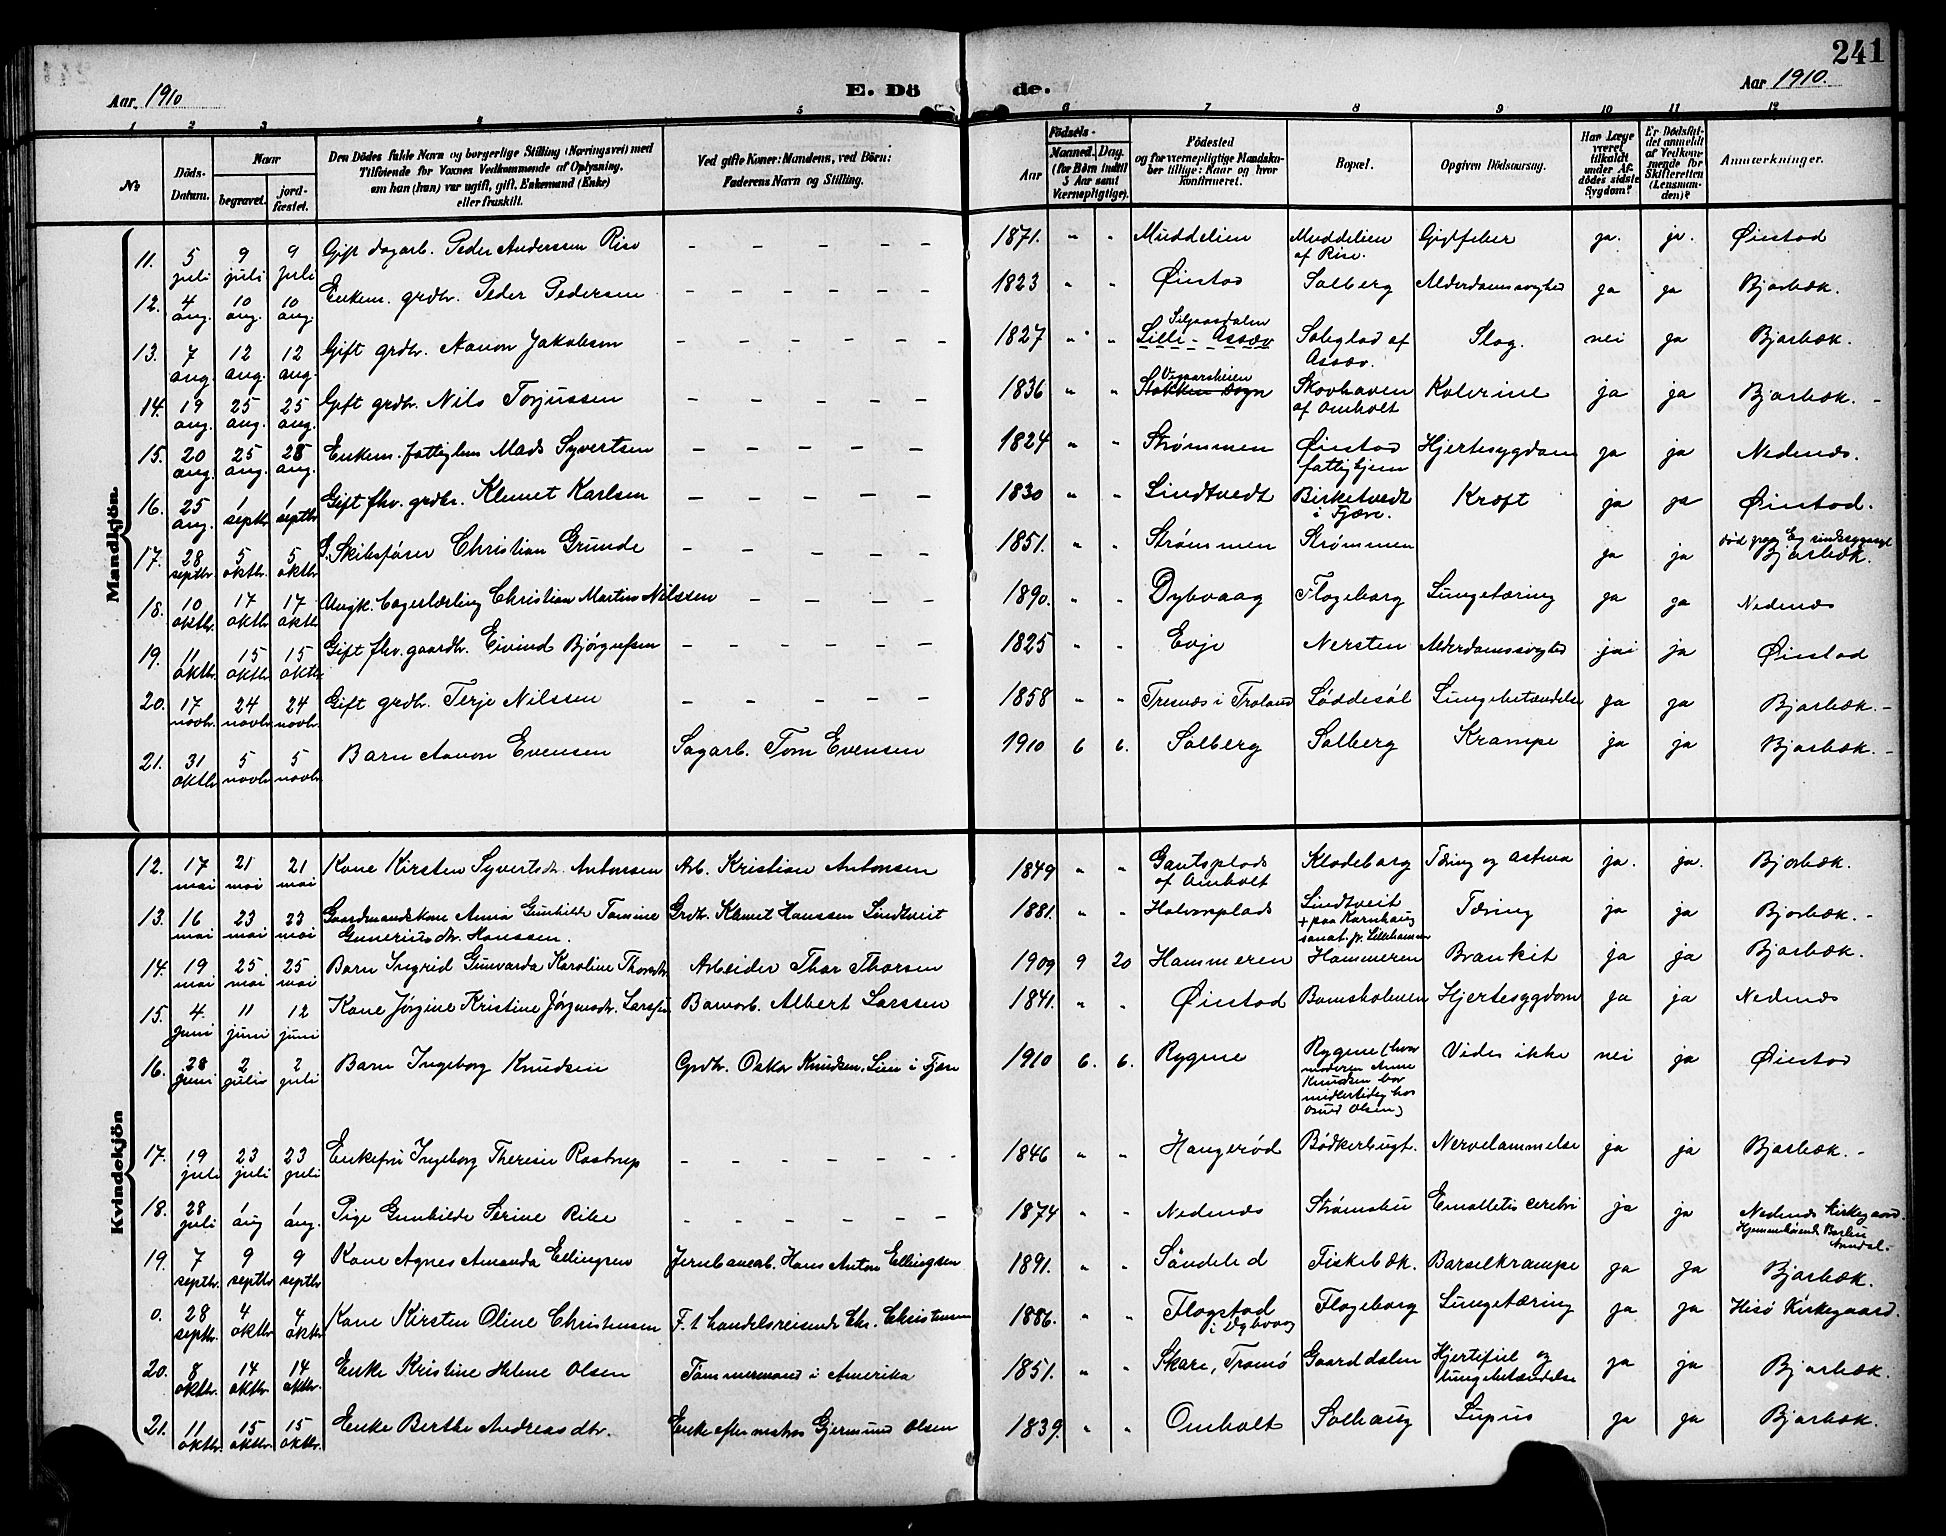 241
Aar 1910
E. Döde.
Aar 1910.
1 2 3 4 5 6 7 8 9 10 11 12
№
Döds-Datum.
Naar
begravet.
jord-fæstet.
Den Dödes fulde Navn og borgerlige Stilling (Næringsvei) med Tilföiende for Voxnes Vedkommende af Oplysning, om han (hun) var ugift, gift, Enkemand (Enke) eller fraskilt.
Ved gifte Koner: Mandens, ved Börn: Faderens Navn og Stilling.
Födsels-
Aar
Maaned. Dag.
(for Börn indtil 5 Aar samt Værnepligtige).
Födested og for værnepligtige Mandskaber tillige: Naar og hvor konfirmeret.
Bopæl.
Opgiven Dödsaarsag.
Har Læge været tilkaldt under Afdödes sidste Sygdom?
Er Dödsfaldet anmeldt af Vedkommende for Skifteretten (Lensmanden)?
Anmærkninger.
Mandkjön.
11. 5 juli 9 juli 9 juli Gift dagarb. Peder Anderssen Rise – – – – – 1871. " " Muddelien Muddelien af Rise. Gigtfeber ja. ja. Øiestad
12. 4 aug. 10 aug. 10 aug. Enkem. grdbr. Peder Pedersen – – – – – 1823 " " Øiestad Solberg Alderdomssvaghed ja ja Bjorbæk.
13. 7 aug. 12 aug. 12 aug. Gift grdbr. Aanon Jakobsen – – – – – – 1827 " " Lille-Assæv Soleglad af Assæv. Slag. nei ja Bjorbæk.
14. 19 aug. 25 aug. 25 aug. Gift grdbr. Nils Torjussen – – – – – 1836 " " Vegaarsheien Stokken Sogn Skovhaven af Omholt Kolerine ja ja Bjorbæk. –
15. 20 aug. 25 aug. 28 aug. Enkem. fattiglem Mads Syvertsen – – – – – 1824 " " Strømmen Øiestad fattighjem Hjertesygdom ja ja Nedenæs.
16. 25 aug. 1 septbr 1 septbr Gift fhv. grdbr. Klemet Karlsen – – – – – 1830 " " Lindtvedt Birketvedt i Fjære. Kræft ja ja Øiestad.
17. 28 septbr. 5 oktbr. 5 oktbr G. Skibsfører Christian Grunde – – – – – 1851. " " Strømmen Strømmen ja ja død paa Eg sindssygeasyl Bjorbæk.
18. 10 oktbr. 17 oktbr 17 oktbr Ungk. bagerlærling Christian Martin Nilssen – – – – 1890. " " Dybvaag Flageborg Lungetæring ja ja Nedenæs
19. 11 oktbr. 15 oktbr. 15 oktbr. Gift fhv. gaardbr. Eivind Bjørgufsen – – – – – – 1825 " " Evje Nersten Alderdomssvaghed ja ja Øiestad
20. 17 novbr. 24 novbr 24 novbr. Gift grdbr. Terje Nilssen – – – – – – 1858 " " Tresnæs i Froland Løddesøl Lungebetændelse ja ja Bjorbæk. –
21. 31 oktbr 5 novbr. 5 novbr Barn Aanon Evensen Sagarb. Tom Evensen 1910 6 6. Solberg Solberg Krampe ja ja Bjorbæk. –
Kvindekjön
12. 17 mai 21 mai 21 mai Kone Kirsten Syvertsdr. Antonsen Arb. Kristian Antonsen 1849 " " Gautsplads af Omholt Klodeborg Tæring og astma ja. ja. Bjorbæk.
13. 16 mai 23 mai 23 mai Gaardmandskone Anna Gunhilde Tomine Guneriusdtr. Hanssen. Grdbr. Klemet Hanssen Lindtveit 1881. " " Halvorsplads Lindtveit + paa Kornhaug sanat. pr. Lillehammer Tæring ja ja Bjorbæk. –
14. 19 mai 25 mai 25 mai Barn Ingrid Gunvarda Karoline Thorsdr. Arbeider Thor Thorsen 1909 9 20 Hammeren Hammeren Bronkit ja ja Bjorbæk.
15. 4. juni 11 juni 12 juni Kone Jørgine Kristine Jørgensdtr. Larssen Banearb. Albert Larssen 1841. " " Øiestad Bomsholmen Hjertesygdom ja ja Nedenæs
16. 28 juni 2 juli 2 juli Barn Ingeborg Knudsen Grdbr. Oskar Knudsen, Lien i Fjære 1910 6. 6. Rygene Rygene (hvor moderen Anne Knudsen bor midlertidig hos Osuld Olsen) Vides ikke nei ja Øiestad
17. 19 juli 23 juli 23 juli Enkefru Ingeborg Theresie Rostrup – – – – – – 1846 " " Haugerød Bödkerbugt. Nervelammelse ja ja Bjorbæk. –
18. 28 juli 1 aug 1 aug. Pige Gunhilde Serine Rike – – – – – – 1874 " " Nedenæs Strømsbu Emolletis cerebri ja ja Nedenæs kirkegaard. Hjemmehörende Barbu Arendal. –
19. 7 septbr. 9 septbr 9 septbr Kone Agnes Amanda Ellingsen Jernbanearb. Hans Anton Ellingsen 1891. " " Söndeled Fiskebæk. Barselkrampe ja ja Bjorbæk.
0. 28 septbr. 4 oktbr 4 oktbr Kone Kirsten Oline Christensen F. t. handelsreisende Chr. Christensen 1886. " " Flagstad i Dybvaag Flageborg Lungetæring ja ja Hisö Kirkegaard.
20. 8 oktbr. 14 oktbr. 14 oktbr. Enke Kristine Helene Olsen Tömmermand i Amerika 1851. " " Skare, Tromö Gaarddalen Hjertefeil og lungebetændelse ja ja Bjorbæk.
21. 11 oktbr. 15 oktbr. 15 oktbr. Enke Berthe Andreasdtr. Enke efter matros Gjermund Olsen 1839. " " Omholt Solhaug Lupus ja ja Bjorbæk.